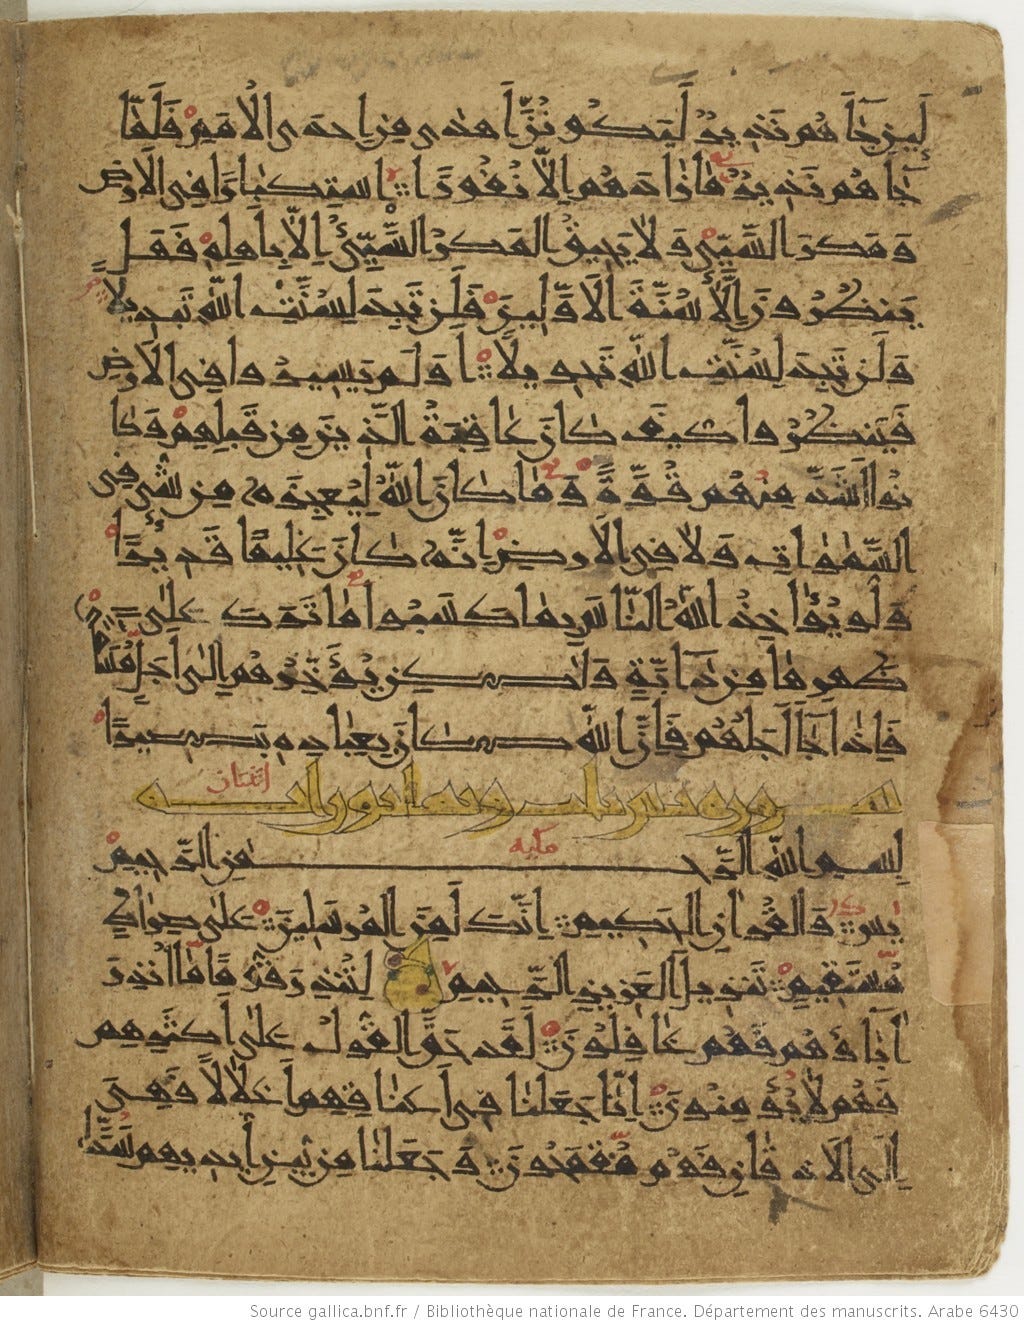 لَئِن جَاءَهُمْ نَذِيرٌ لَيَكُونُنَّ أَهْدَى مِنْ إِحْدَى الْأُمَمِ فَلَمَّا
جَاءَهُمْ نَذِيرٌ مَا زَادَهُمْ إِلَّا نُفُورًا اسْتِكْبَارًا فِي الْأَرْضِ
وَمَكْرَ السَّيِّئِ وَلَا يَحِيقُ الْمَكْرُ السَّيِّئُ إِلَّا بِأَهْلِهِ فَهَلْ
يَنظُرُونَ إِلَّا سُنَّةَ الْأَوَّلِينَ فَلَن تَجِدَ لِسُنَّتِ اللَّهِ تَبْدِيلًا
وَلَن تَجِدَ لِسُنَّتِ اللَّهِ تَحْوِيلًا أَوَلَمْ يَسِيرُوا فِي الْأَرْضِ
فَيَنظُرُوا كَيْفَ كَانَ عَاقِبَةُ الَّذِينَ مِن قَبْلِهِمْ وَكَا
نُوا أَشَدَّ مِنْهُمْ قُوَّةً وَمَا كَانَ اللَّهُ لِيُعْجِزَهُ مِن شَيْءٍ فِي
السَّمَٰوَاتِ وَلَا فِي الْأَرْضِ إِنَّهُ كَانَ عَلِيمًا قَدِيرًا
وَلَوْ يُؤَاخِذُ اللَّهُ النَّاسَ بِمَا كَسَبُوا مَا تَرَكَ عَلَىٰ
ظَهْرِهَا مِن دَابَّةٍ وَلَٰكِن يُؤَخِّرُهُمْ إِلَىٰ أَجَلٍ مُّسَمًّى
فَإِذَا جَاءَ أَجَلُهُمْ فَإِنَّ اللَّهَ كَانَ بِعِبَادِهِ بَصِيرًا
اثنتان
سورة يس وثمانون اية
مكية
بِسْمِ اللَّهِ الرَّحْمَٰنِ الرَّحِيمِ
يس وَالْقُرْآنِ الْحَكِيمِ إِنَّكَ لَمِنَ الْمُرْسَلِينَ عَلَىٰ صِرَاطٍ
مُّسْتَقِيمٍ تَنزِيلَ الْعَزِيزِ الرَّحِيمِ لِتُنذِرَ قَوْمًا مَّا أُنذِرَ
آبَاؤُهُمْ فَهُمْ غَافِلُونَ لَقَدْ حَقَّ الْقَوْلُ عَلَىٰ أَكْثَرِهِمْ
فَهُمْ لَا يُؤْمِنُونَ إِنَّا جَعَلْنَا فِي أَعْنَاقِهِمْ أَغْلَالًا فَهِيَ
إِلَى الْأَذْقَانِ فَهُم مُّقْمَحُونَ وَجَعَلْنَا مِن بَيْنِ أَيْدِيهِمْ سَدًّا
Source gallica.bnf.fr / Bibliothèque nationale de France. Département des manuscrits. Arabe 6430